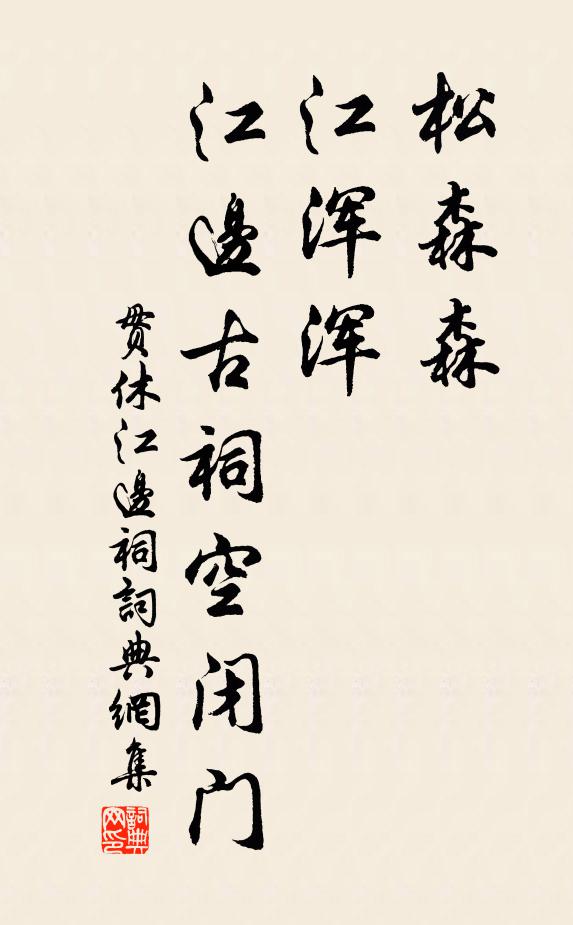 松森森
江浑浑
江邊古祠空闭门
贯休江邊祠詞典網集
詞典网印